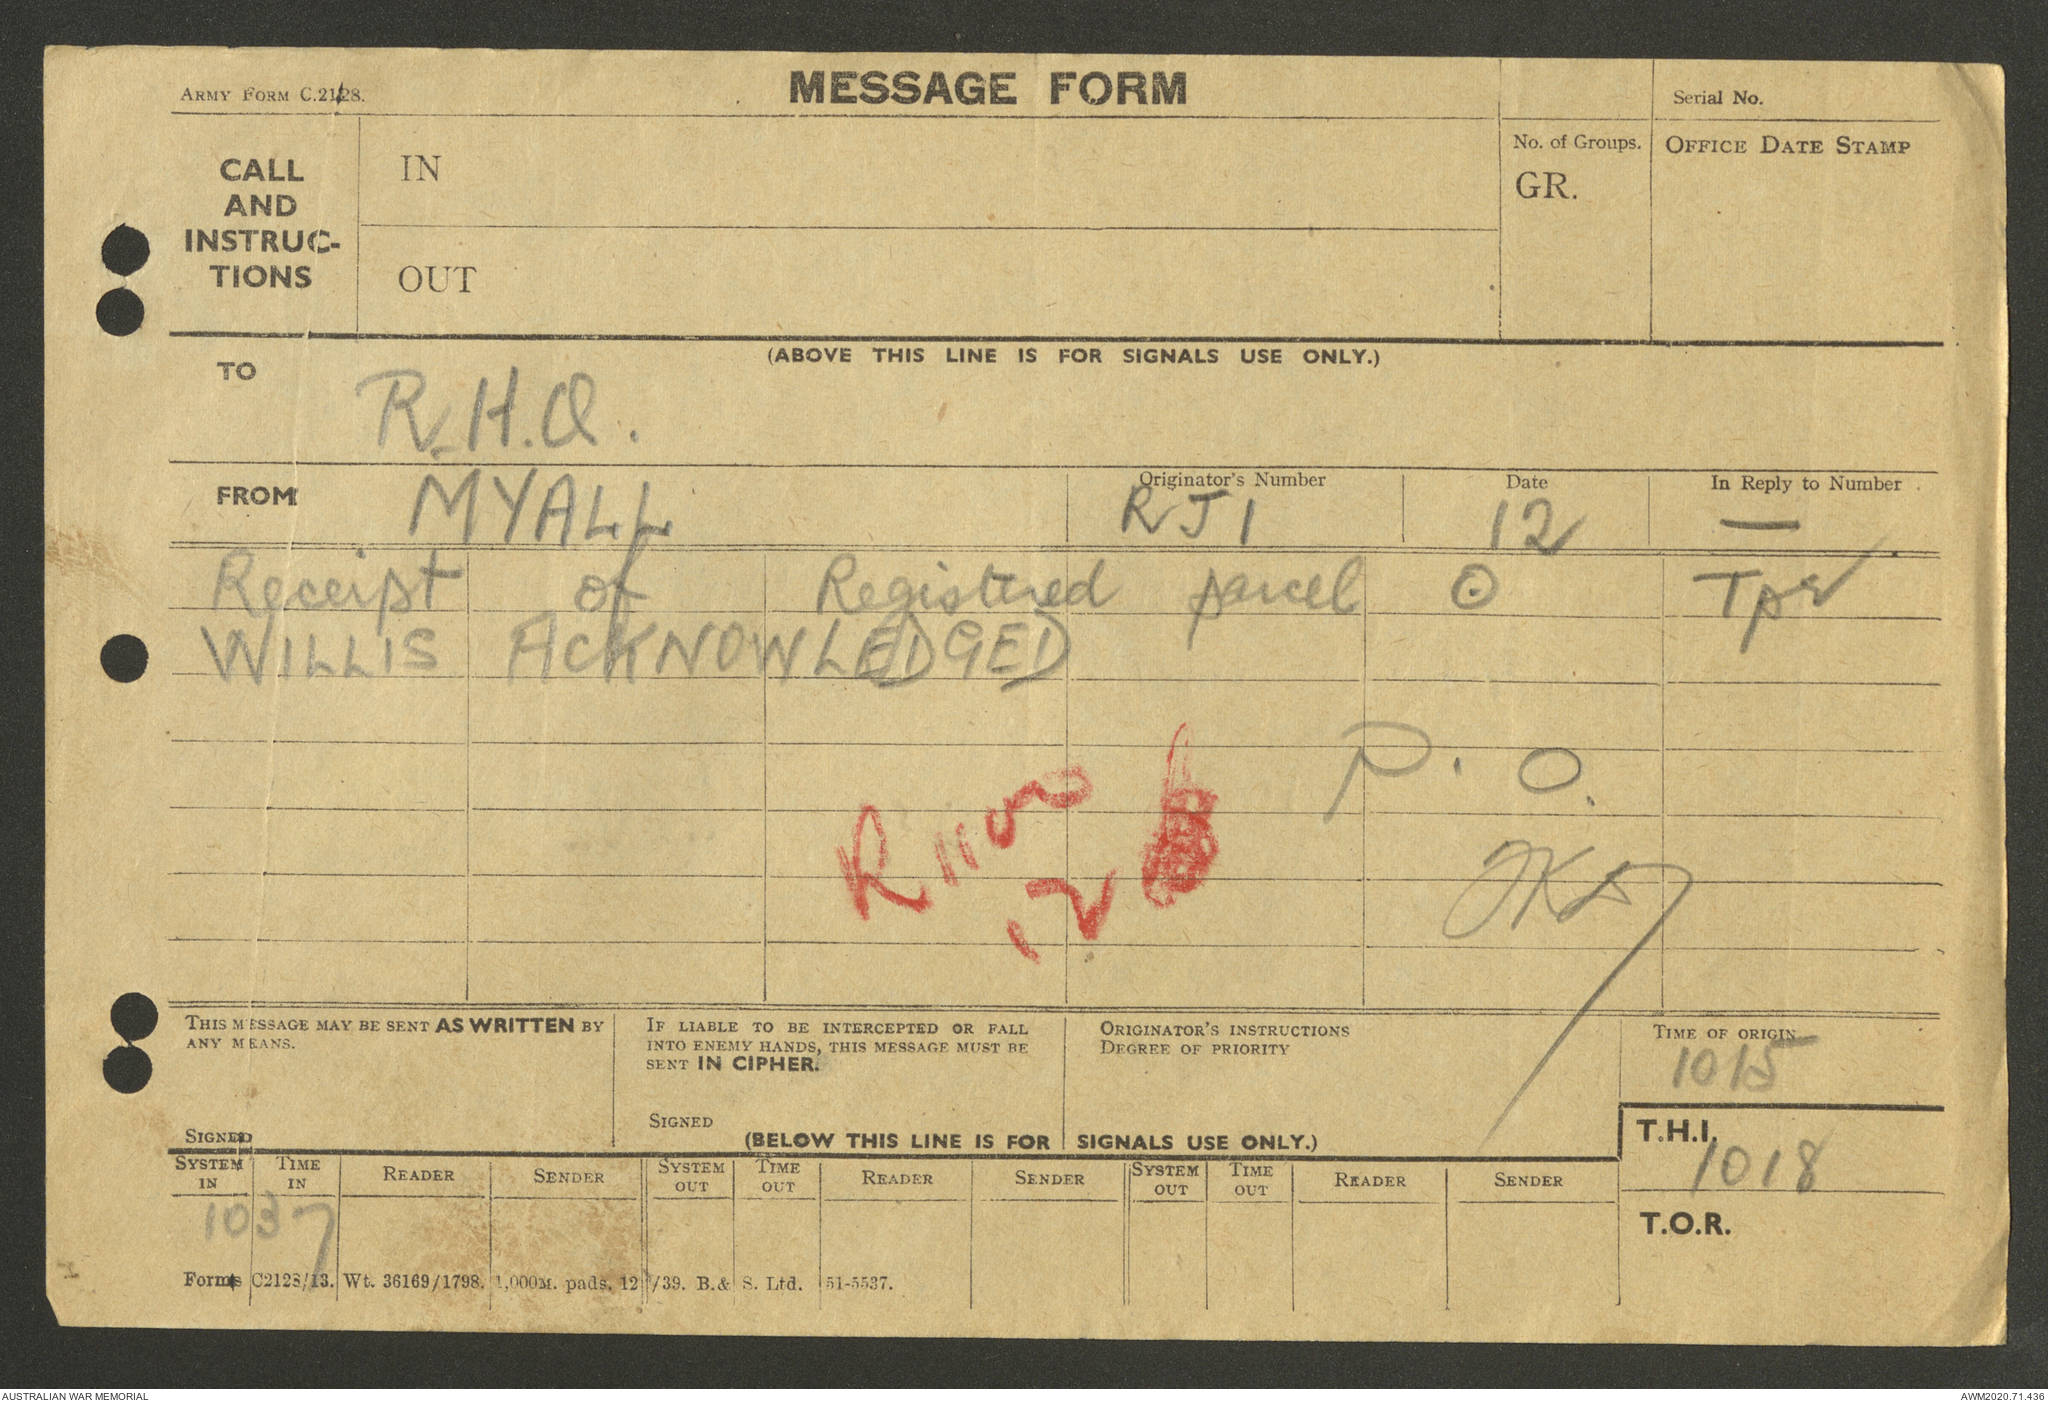 ARMY FORM C.2128.
MESSAGE FORM
Serial No.
CALL
AND
INSTRUC-
TIONS
IN
OUT
No. of Groups.
GR.
OFFICE DATE STAMP
(ABOVE THIS LINE IS FOR SIGNALS USE ONLY.)
TO
R.H.Q.
FROM
MYALL
Originator's Number
RJ1
Date
12
In Reply to Number
—
Receipt of Registered parcel ⊙ Tpr
WILLIS ACKNOWLEDGED
P. O.
R 1100
12
THIS MESSAGE MAY BE SENT AS WRITTEN BY
ANY MEANS.
SIGNED
IF LIABLE TO BE INTERCEPTED OR FALL
INTO ENEMY HANDS, THIS MESSAGE MUST BE
SENT IN CIPHER.
SIGNED
ORIGINATOR'S INSTRUCTIONS
DEGREE OF PRIORITY
TIME OF ORIGIN
1015
(BELOW THIS LINE IS FOR SIGNALS USE ONLY.)
T.H.I.
1018
T.O.R.
SYSTEM IN TIME IN READER SENDER SYSTEM OUT TIME OUT READER SENDER SYSTEM OUT TIME OUT READER SENDER
1037
Forms C2128/13. Wt. 36169/1798. 1,000M. pads. 12/39. B.& S. Ltd. 51-5537.
AUSTRALIAN WAR MEMORIAL
AWM2020.71.436